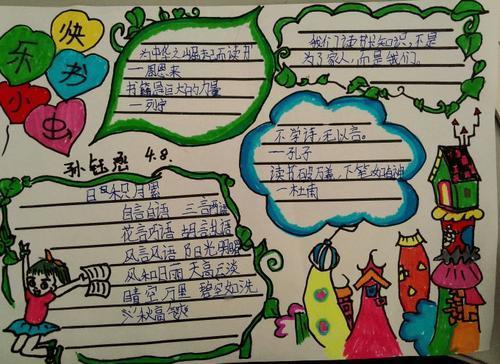 快
乐
书
小
虫
为中华之崛起而读书
—周恩来
书籍是巨大的力量
—列宁
我们读书长知识,不是
为了家人,而是我们。
不学诗,无以言。
—孔子
读书破万卷,下笔如有神
—杜甫
4.8.
日积月累
自言自语
花言巧语 胡言乱语
风言风语 阳光明媚
风和日丽 天高云淡
晴空万里 碧空如洗
秋高气